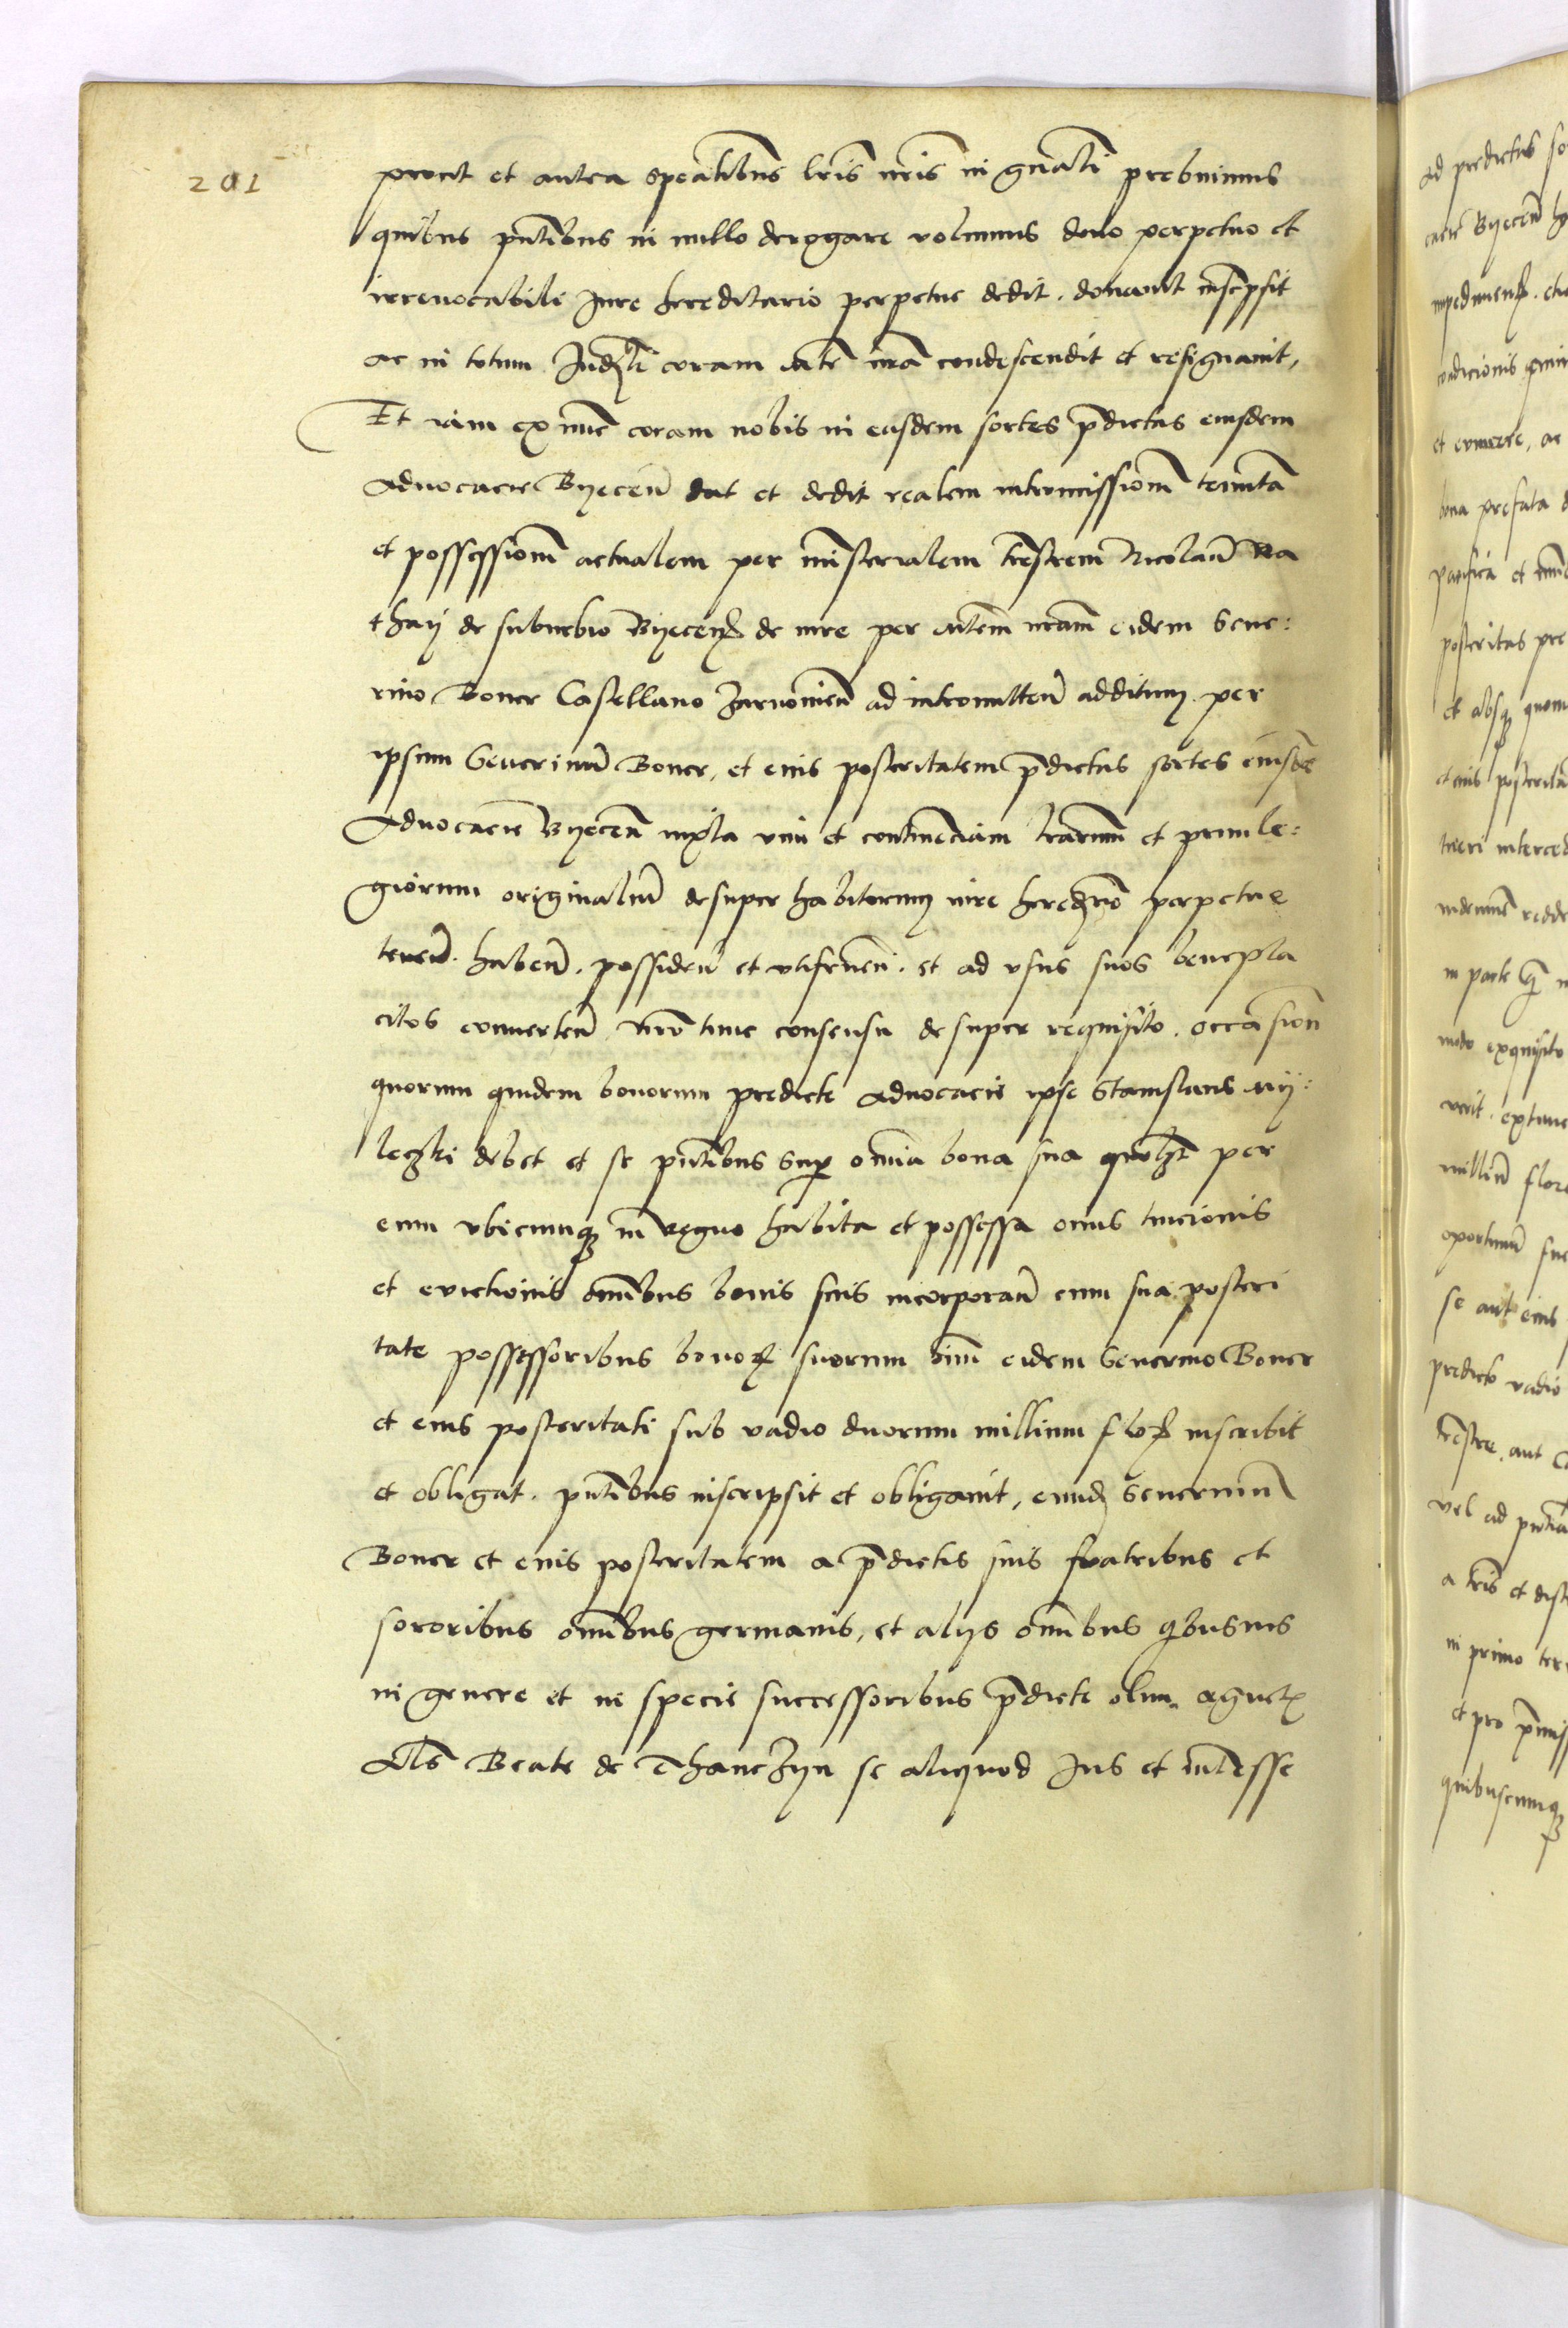 201
prout et antea specialibus lris nris in gnali prebuimus
quibus pntibus in nullo derogare volumus dono perpetuo et
irrevocabili Jure hereditario perpetue dedit. donavit inscripsit
ac in totum coram mte nra condescendit et resignavit,
Et iam ex nunc coram nobis in easdem sortes pdictas eiusdem
Advocacie Byecen dat et dedit realem intromissionem tenutam
et possessionem actualem per ministerialem trestrem Nicolaum Ma
thay de suburbio Byecen de iure per mtem nram eidem Seve:
rino Boner Castellano Zarnovien ad intromitten additum per
ipsum Severinum Boner, et eius posteritatem pdictas sortes eiusde
Advocacie Byecen iuxta vim et continenciam lrarum et privile:
giorum originalium desuper habitorum iure heredrio perpetue
tenen. haben. possiden et utifruen. et ad usus suos benepla
citos converten. nro tunc consensu desuper requisito. occasione
quorum quidem bonorum predicte Advocacie ipse Stanislaus My:
leczki debet et se pntibus sup omnia bona sua quelzt per
eum ubicunq in regno habita et possessa onus tuicionis
et evictionis omnibus bonis suis incorporan cum sua posteri
tate possessoribus bonor suorum oim eidem Severino Boner
et eius posteritati sub vadio duorum millium flor inscribit
et obligat. pntibus inscripsit et obligavit, eund Severinum
Boner et eius posteritatem a pdictis suis fratribus et
sororibus omnibus germanis, et alys omnibus qbusvis
in genere et in specie successoribus pdicte olim Agnet
Als Beate de Thanczyn se aliquod Jus et intesse
ad predictas so
cacie Byecen
impedimen
condicionis
et evincere, ac
bona prefata
pacifica et
posteritas pre
et absq
et eius posterita
terri interced
indemne redde
in parte
modo exquisito
verit. extunc
millium flore
oportunum fue
se aut eius
predicto vadio
trestre, aut
vel ad
a tris et dist
in primo ter
et pro pmiss
quibuscunq